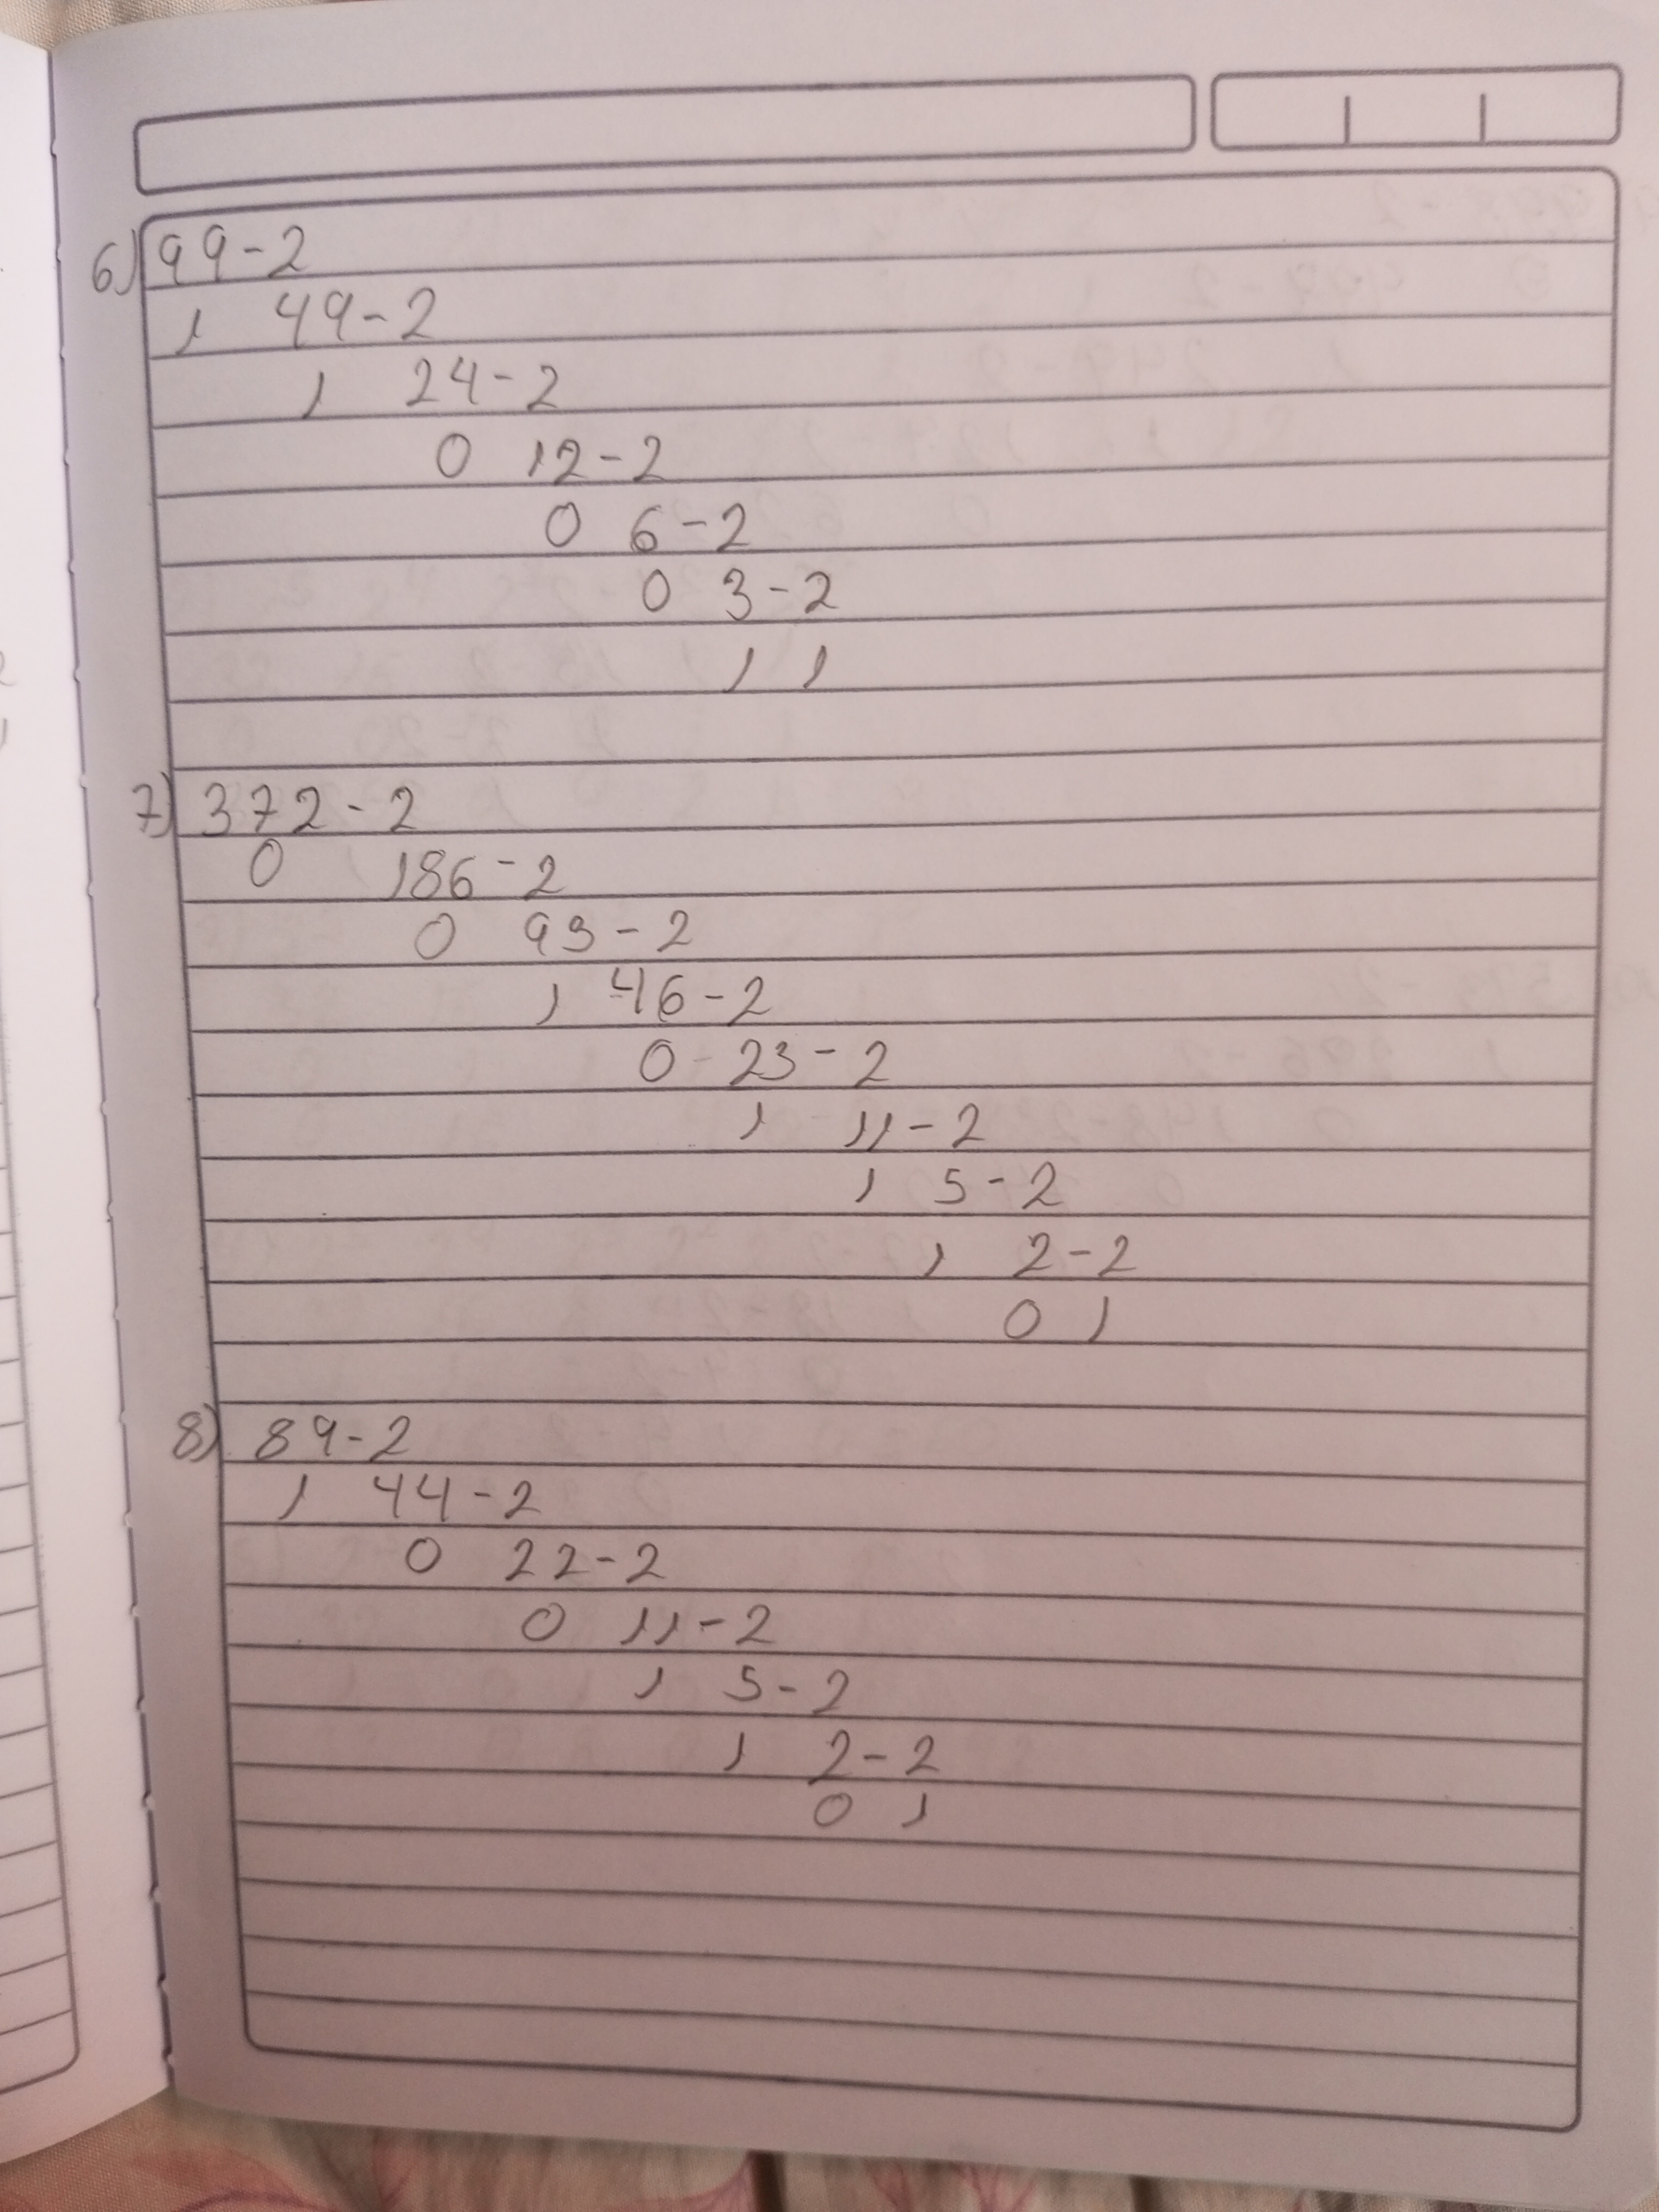 6) 99-2
1 49-2
1 24-2
0 12-2
0 6-2
0 3-2
1 1
7) 372-2
0 186-2
0 93-2
1 46-2
0-23-2
1 11-2
1 5-2
1 2-2
0 1
8) 89-2
1 44-2
0 22-2
0 11-2
1 5-2
1 2-2
0 1